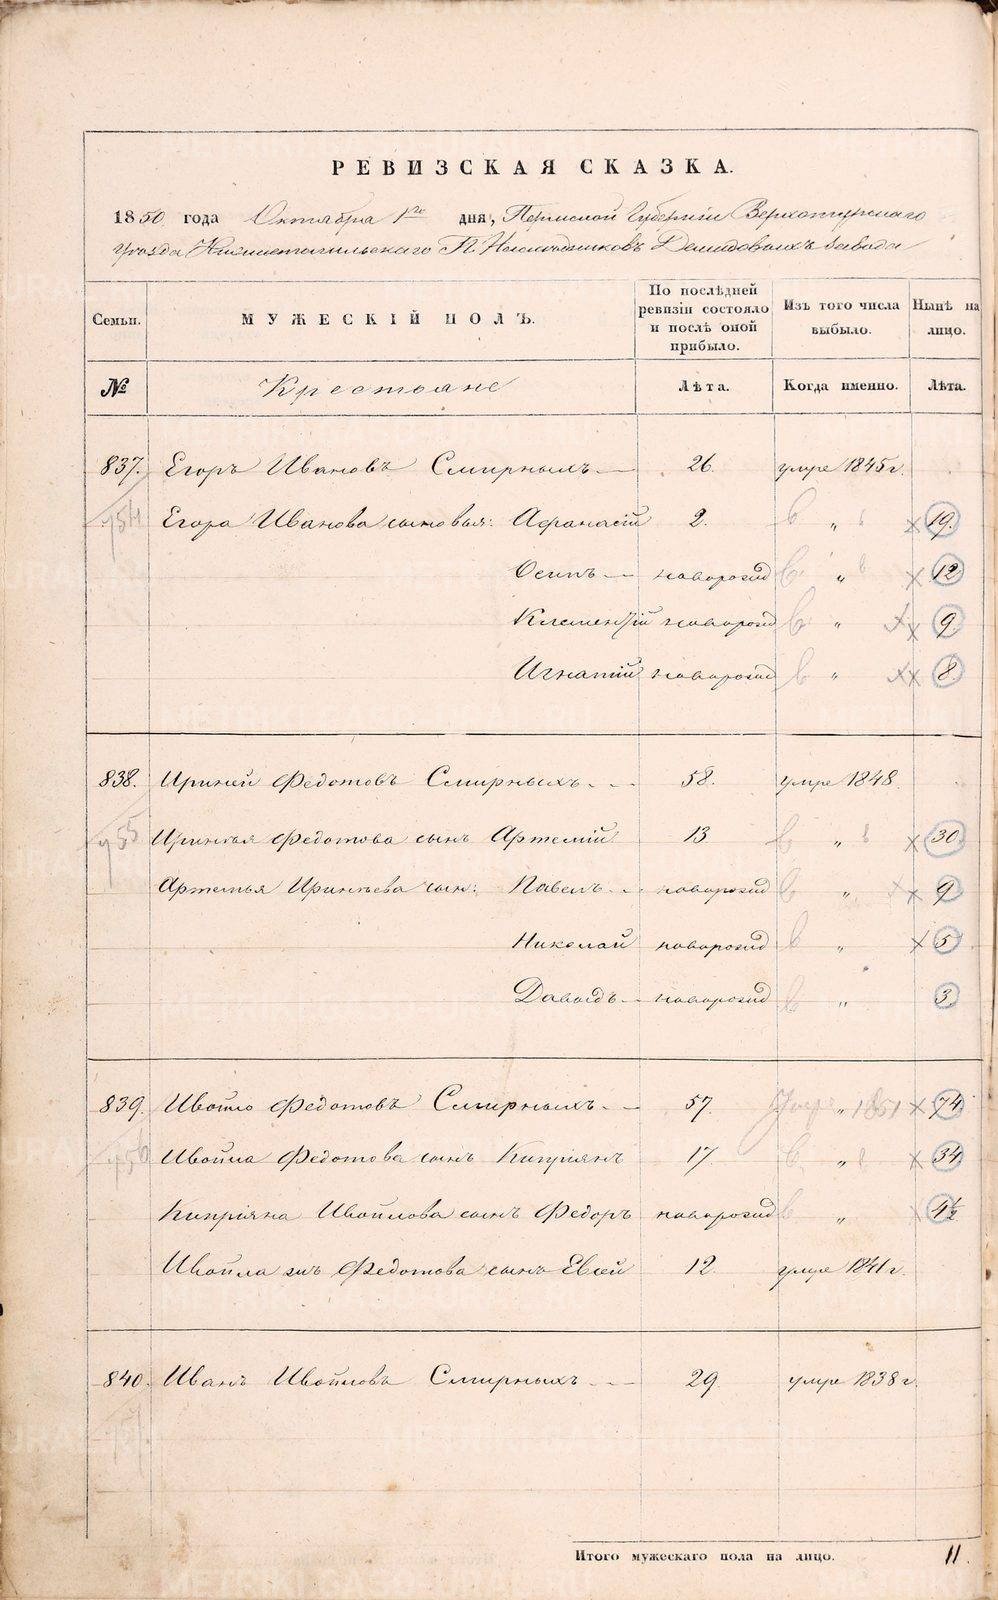 РЕВИЗСКАЯ СКАЗКА.
1850 года Октября 1го дня, Пермской Губерніи Верхотурскаго
уѣзда Нижнетагильскаго Г.Г. Наслѣдниковъ Демидовыхъ завода
Семьи. МУЖЕСКІЙ ПОЛЪ. По послѣдней ревизіи состояло и послѣ оной прибыло. Изъ того числа выбыло. Нынѣ на лицо.
№ Крестьяне Лѣта. Когда именно. Лѣта.
837. Егоръ Ивановъ Смирныхъ 26. умре 1845 г.
954 Егора Иванова сыновья: Афанасій 2. „ 19.
Осипъ новорожд „ 12
Климентій новорожд „ 9.
Игнатій новорожд „ 8.
838. Ириней Федотовъ Смирныхъ 58. умре 1848.
955 Иринья Федотова сынъ Артемій 13 „ 30
Артемья Ириньева сын: Павелъ новорожд „ 9
Николай новорожд „ 5
Давыдъ новорожд „ 3.
839. Ивойло Федотовъ Смирныхъ 57. Умре „ 1851 74
956 Ивойла Федотова сынъ Кипріянъ 17. „ 34
Кипріяна Ивойлова сынъ Федоръ новорожд „ 4½
Ивойла жъ Федотова сынъ Евсей 12. умре 1841 г.
840. Иванъ Ивойловъ Смирныхъ 29. умре 1838 г.
Итого мужескаго пола на лицо. 11.